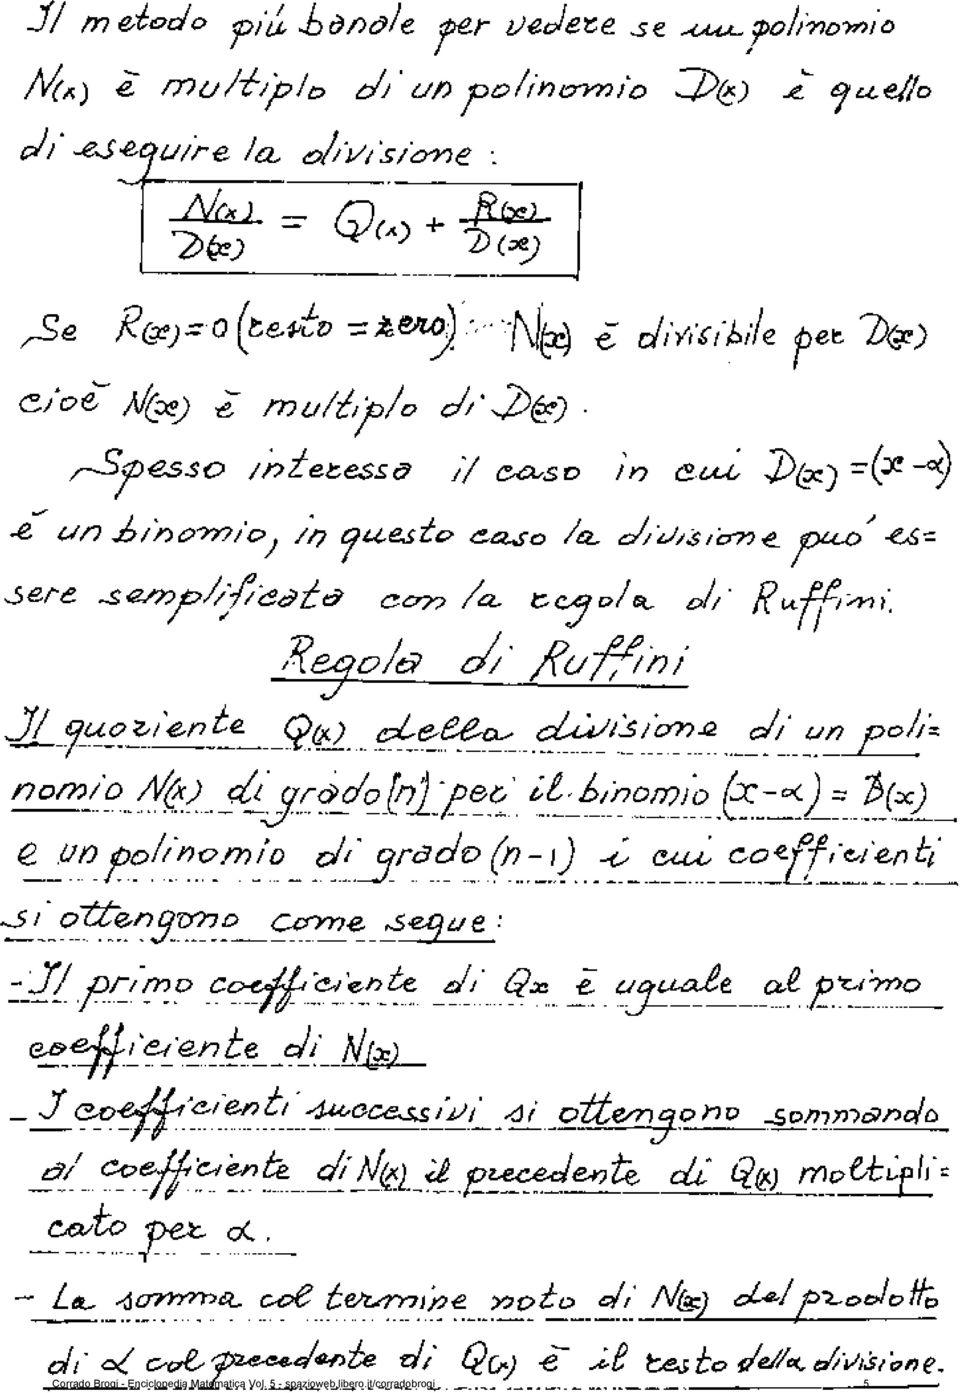 Il metodo piú banale per vedere se un polinomio
N(x) è multiplo di un polinomio D(x) è quello
di eseguire la divisione :
N(x)/D(x) = Q(x) + R(x)/D(x)
Se R(x)=0 (resto = zero) N(x) è divisibile per D(x)
cioè N(x) è multiplo di D(x).
Spesso interessa il caso in cui D(x) =(x-α)
è un binomio, in questo caso la divisione puó es=
sere semplificata con la regola di Ruffini.
Regola di Ruffini
Il quoziente Q(x) della divisione di un poli=
nomio N(x) di grado (n) per il binomio (x-α) = D(x)
e un polinomio di grado (n-1) i cui coefficienti
si ottengono come segue:
- Il primo coefficiente di Qx è uguale al primo
coefficiente di N(x)
- I coefficienti successivi si ottengono sommando
al coefficiente di N(x) il precedente di Q(x) moltipli=
cato per α.
- La somma col termine noto di N(x) del prodotto
di α col precedente di Q(x) è il resto della divisione.
Corrado Brogi - Enciclopedia Matematica Vol. 5 - spazioweb.libero.it/corradobrogi 5